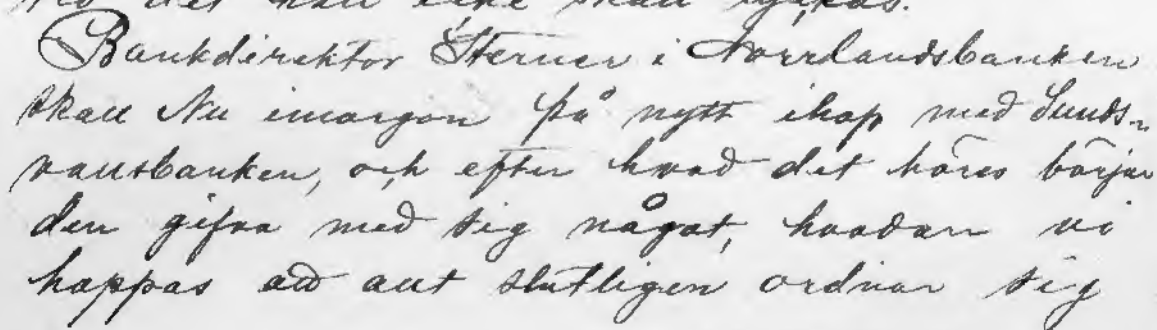 det icke skall lyckas.
Bankdirektor Sterner i Norrlandsbanken
skall Nu imorgon på nytt ihop med Sunds-
vallsbanken, och efter hvad det höres börjar
den gifva med sig något, hvadan vi
hoppas att allt slutligen ordnar sig